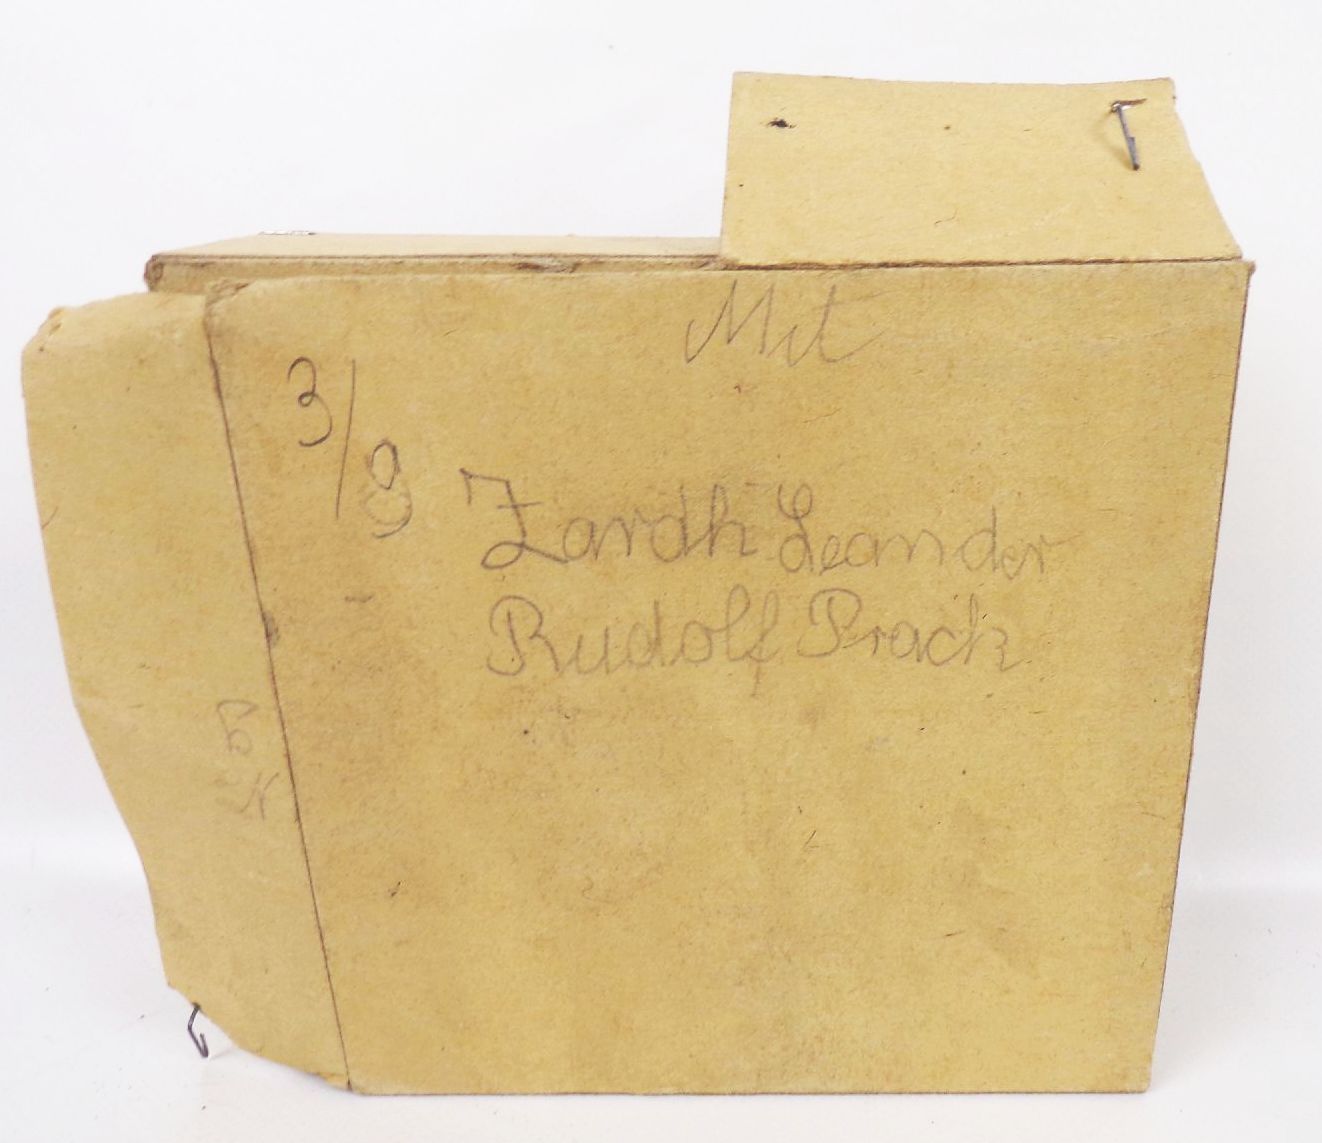 Mit
3/8
Zardh Leander
Rudolf Prack